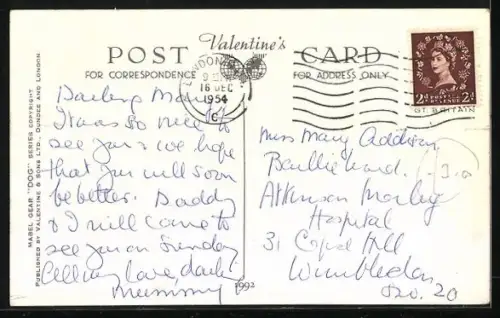 Valentine's
POST CARD
FOR CORRESPONDENCE
FOR ADDRESS ONLY
LONDON
16 DEC
1954
2d POSTAGE REVENUE 2d
GT. BRITAIN
MABEL GEAR "DOG" SERIES COPYRIGHT
PUBLISHED BY VALENTINE & SONS LTD., DUNDEE AND LONDON
Darling Mary
It was so nice to
see you & we hope
that you will soon
be better. Daddy
& I will come to
see you on Sunday
All my love, darling
Mummy
1992
Miss Mary Addison
Ward
Atkinson Morley
Hospital
31 Copse Hill
Wimbledon
S.W. 20